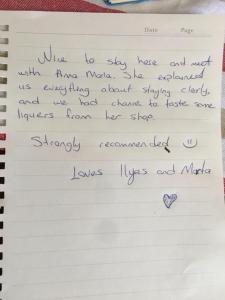 Date Page
Nice to stay here and meet
with Anna Maria. She explained
us everything about staying clerly,
and we had chance to taste some
liquers from her shop.
Strongly recommended
Loves Ilyas and Marta